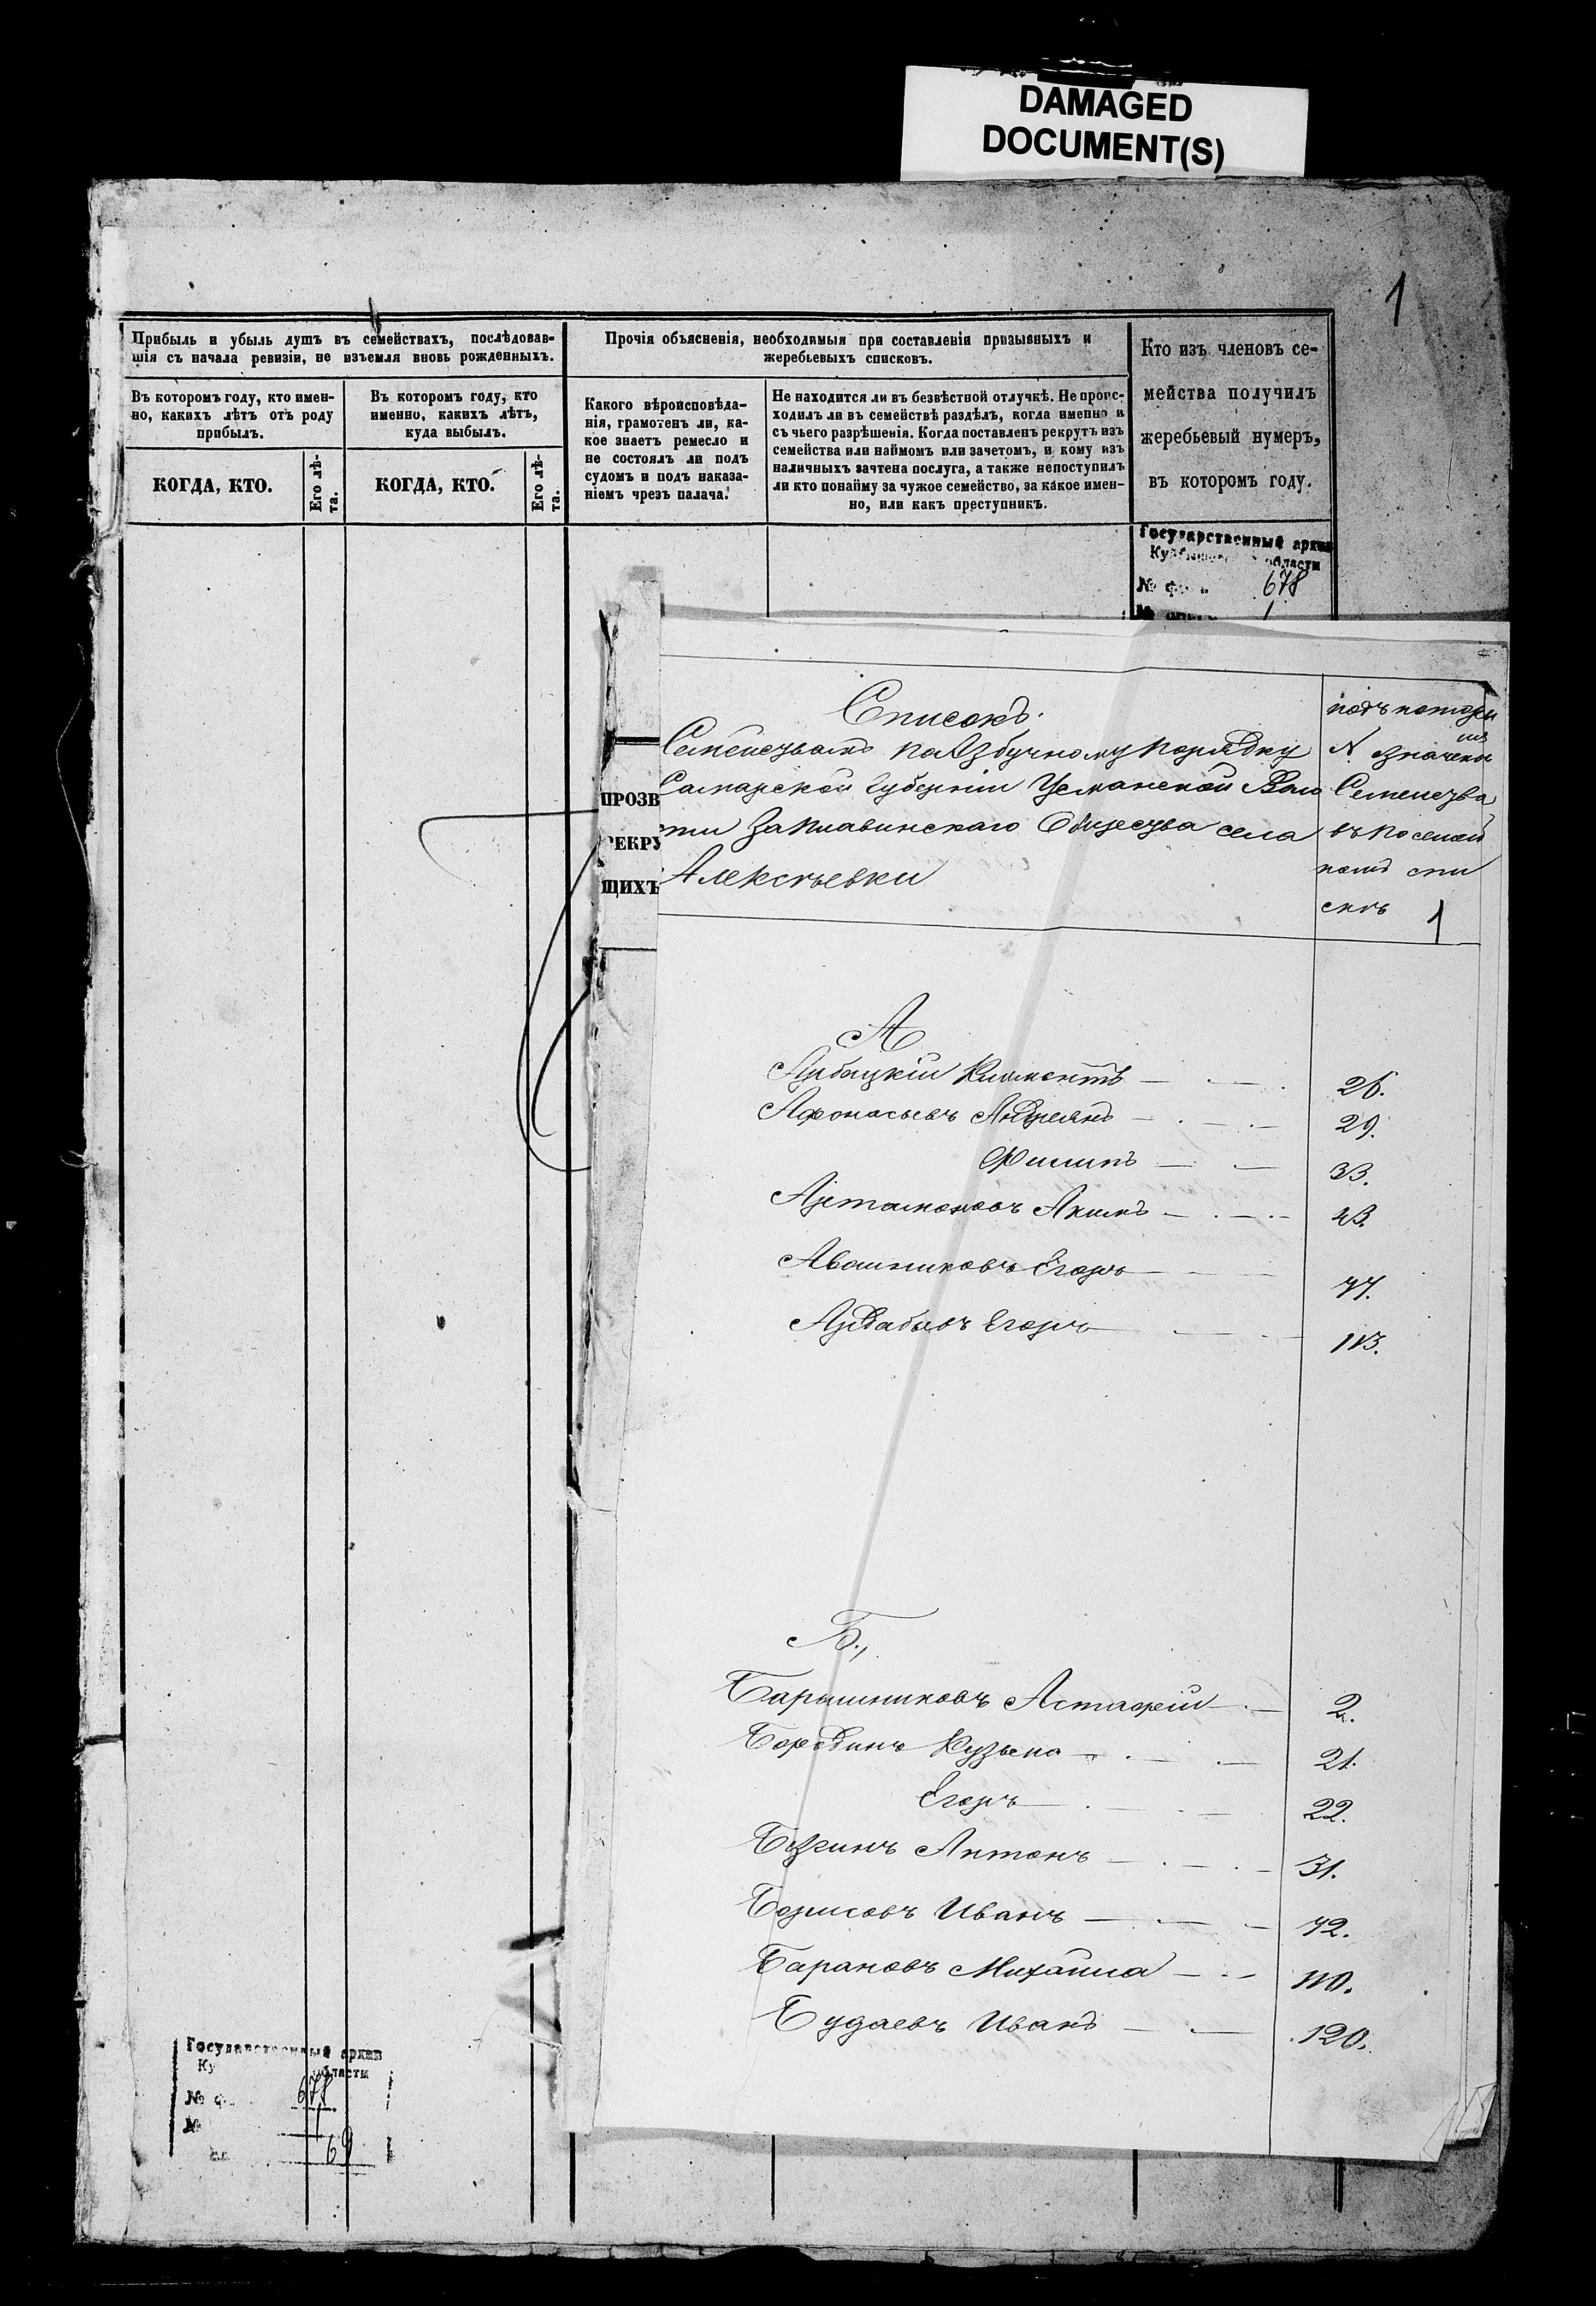 DAMAGED
DOCUMENT(S)
1
Прибыль и убыль душъ въ семействахъ, послѣдовав-
шія съ начала ревизіи, не изъемля вновь рожденныхъ.
Въ которомъ году, кто имен-
но, какихъ лѣтъ отъ роду
прибылъ.
Въ которомъ году, кто
именно, какихъ лѣтъ,
куда выбылъ.
КОГДА, КТО.
Его лѣ-
та.
КОГДА, КТО.
Его лѣ-
та.
Прочія объясненія, необходимыя при составленіи призывныхъ и
жеребьевыхъ списковъ.
Какого вѣроисповѣда-
нія, грамотенъ ли, ка-
кое знаетъ ремесло и
не состоялъ ли подъ
судомъ и подъ наказа-
ніемъ чрезъ палача.
Не находится ли въ безвѣстной отлучкѣ. Не проис-
ходилъ ли въ семействѣ раздѣлъ, когда именно и
съ чьего разрѣшенія. Когда поставленъ рекрутъ изъ
семейства или наймомъ или зачетомъ, и кому изъ
наличныхъ зачтена послуга, а также непоступилъ
ли кто понайму за чужое семейство, за какое имен-
но, или какъ преступникъ.
Кто изъ членовъ се-
мейства получилъ
жеребьевый нумеръ,
въ которомъ году.
Государственный архив
области
№ 678
1
ПРОЗВ
РЕКРУ
ЩИХЪ
Списокъ.
Семействамъ по Азбучному порядку
Самарской Губерніи Усманской Воло
сти Заплавинскаго Общества села
Алексѣевки
подъ которы
N. значены
Семейства
въ посемей
номъ спи
скѣ 1
А
Арбацкій Климентъ 26.
Афонасьевъ Андреянъ 29.
Филипъ 33.
Артамоновъ Акимъ 43.
Авашниковъ Егоръ 77.
Ардабьевъ Егоръ 113.
Б.,
Барышниковъ Астафей 2.
Бородинъ Кузьма 21.
Егоръ 22.
Бузгинъ Антонъ 31.
Борисовъ Иванъ 72.
Барановъ Михайла 110.
Будаевъ Иванъ 120.
Государственный архив
области
№ 678
№ 1
69